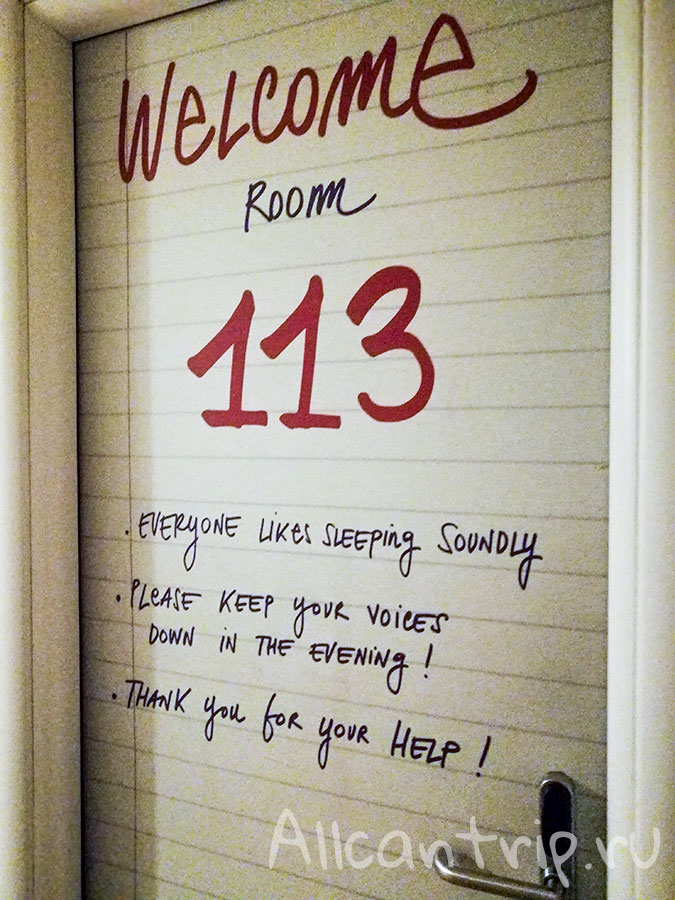 Welcome
Room
113
. EVERYONE LIKES SLEEPING SOUNDLY
. PLEASE KEEP YOUR VOICES
DOWN IN THE EVENING !
. THANK YOU FOR YOUR HELP !
Allcantrip.ru